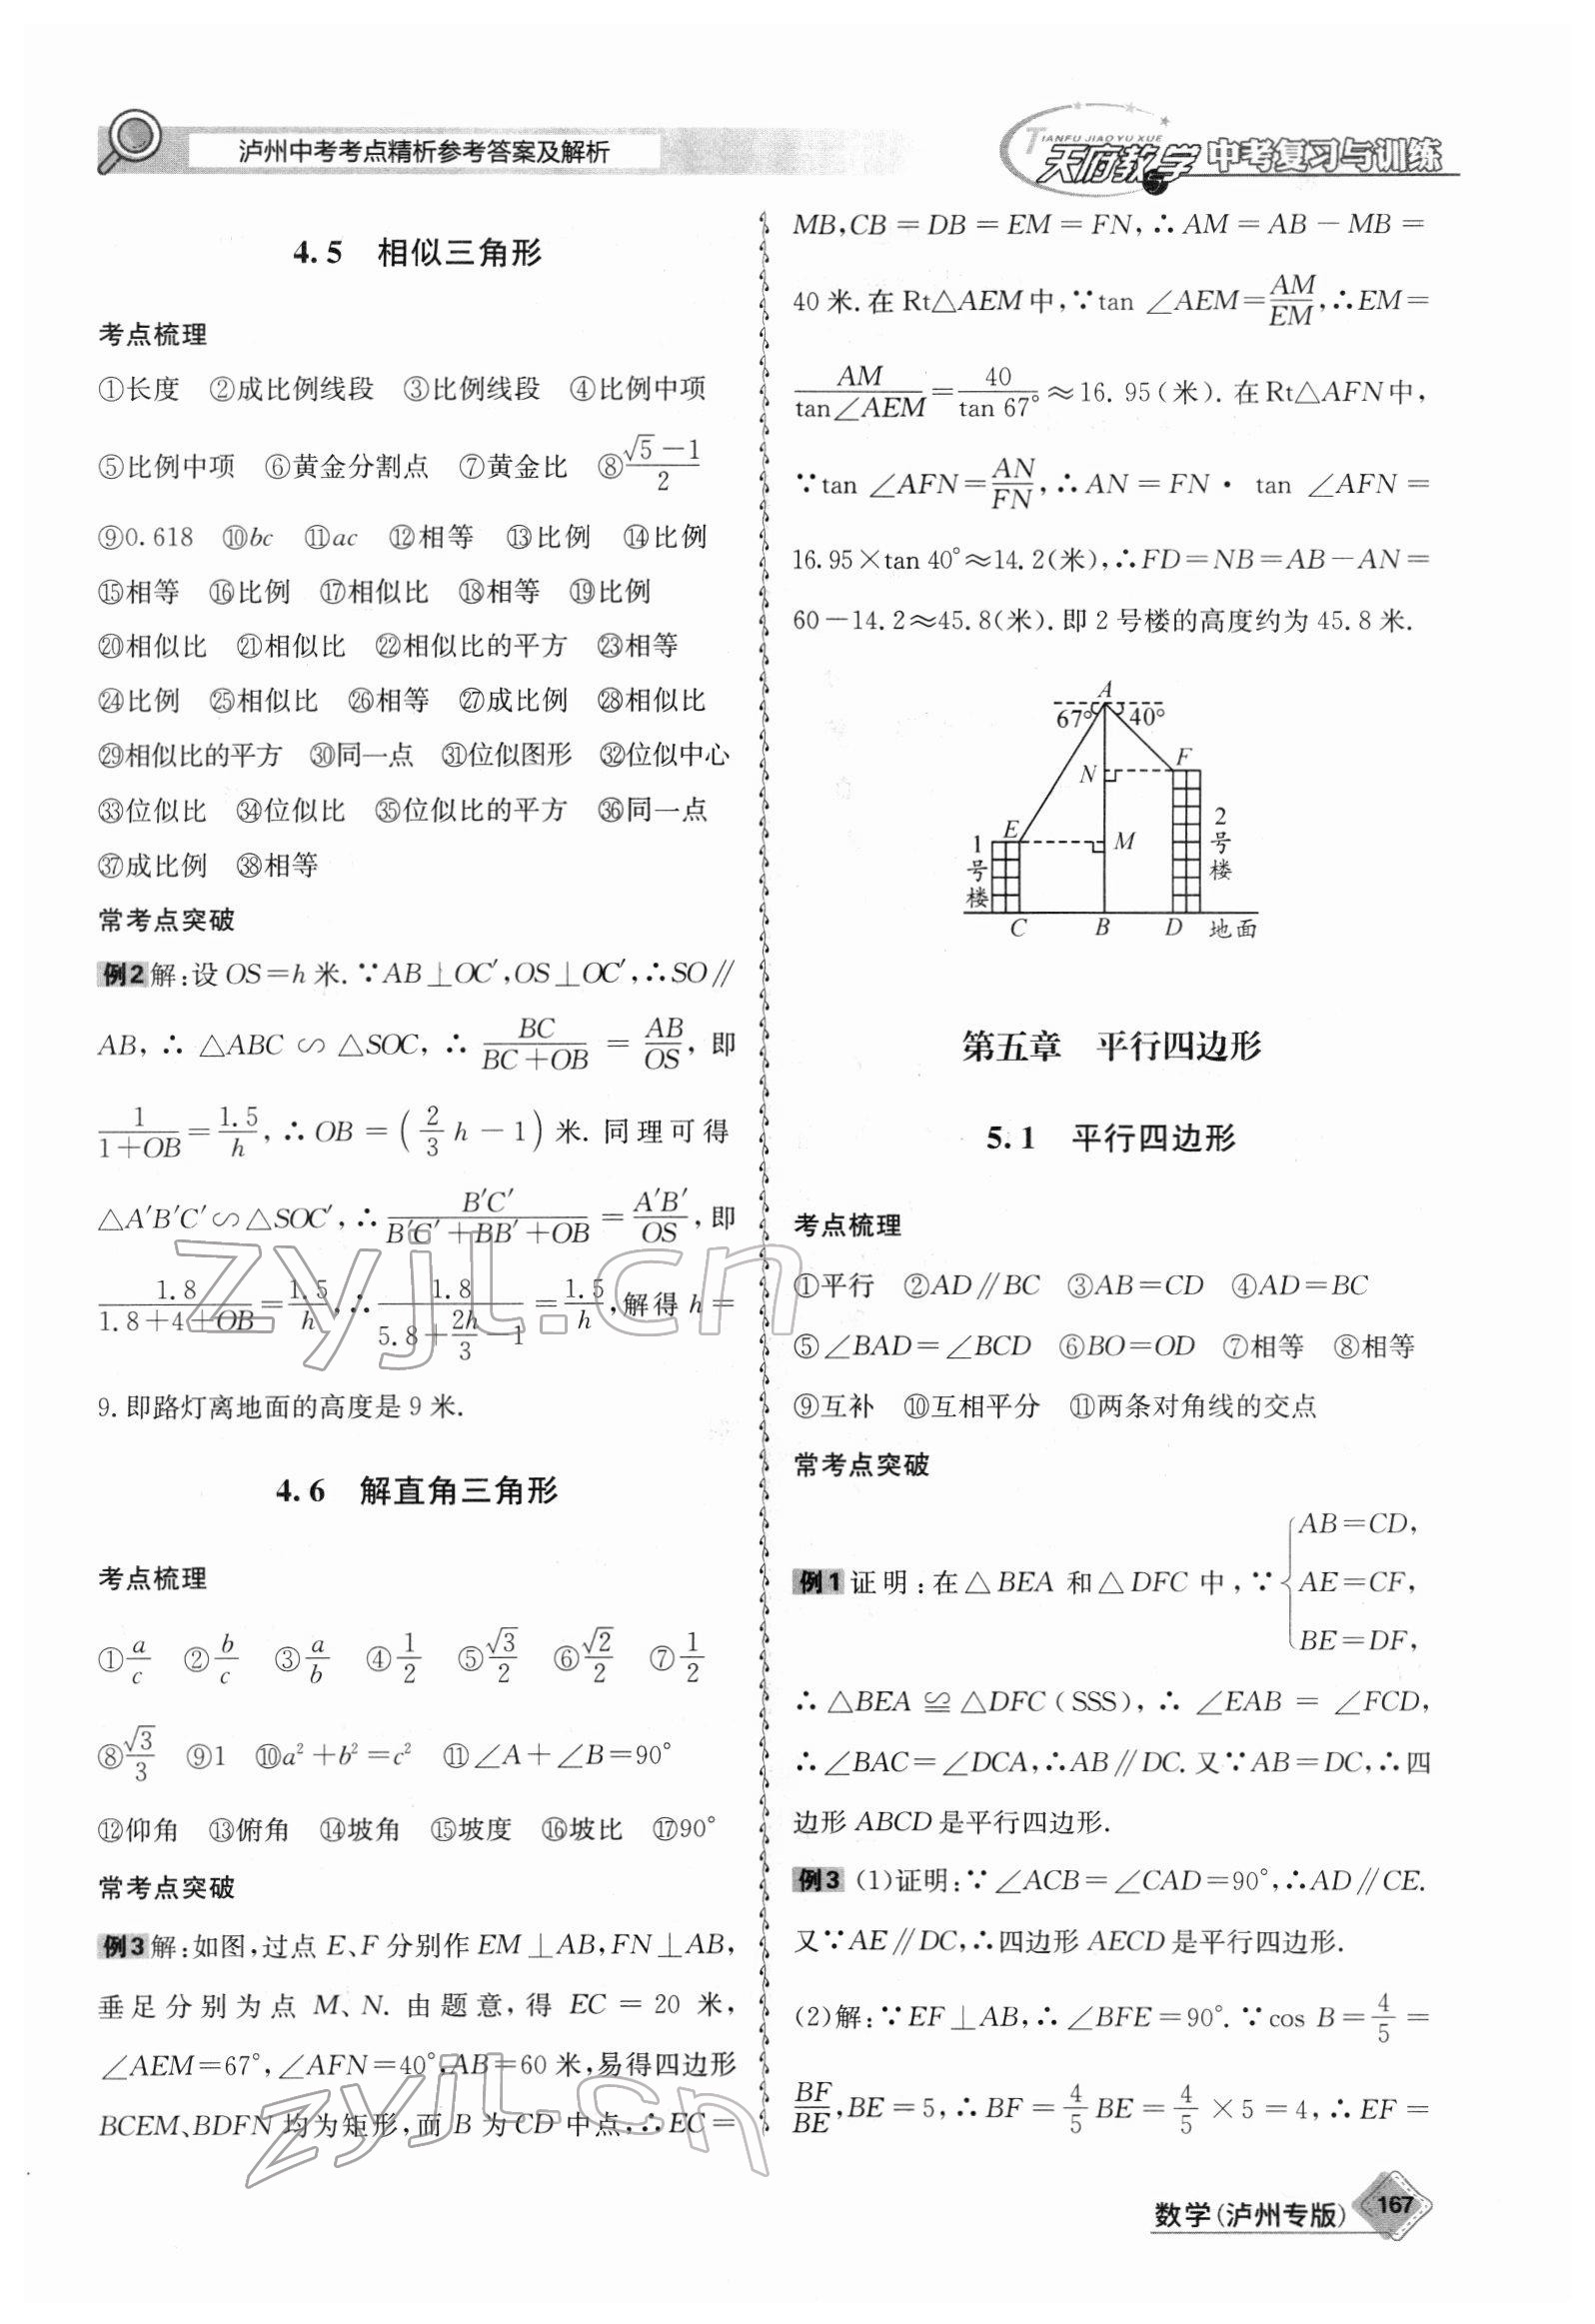 泸州中考考点精析参考答案及解析
TIANFU JIAO YU XUE
天府教与学 中考复习与训练
4.5 相似三角形
考点梳理
①长度 ②成比例线段 ③比例线段 ④比例中项
⑤比例中项 ⑥黄金分割点 ⑦黄金比 ⑧(√5-1)/2
⑨0.618 ⑩bc ⑪ac ⑫相等 ⑬比例 ⑭比例
⑮相等 ⑯比例 ⑰相似比 ⑱相等 ⑲比例
⑳相似比 ㉑相似比 ㉒相似比的平方 ㉓相等
㉔比例 ㉕相似比 ㉖相等 ㉗成比例 ㉘相似比
㉙相似比的平方 ㉚同一点 ㉛位似图形 ㉜位似中心
㉝位似比 ㉞位似比 ㉟位似比的平方 ㊱同一点
㊲成比例 ㊳相等
常考点突破
例2 解:设 OS=h 米.∵AB⊥OC′,OS⊥OC′,∴SO∥
AB,∴△ABC∽△SOC,∴BC/(BC+OB)=AB/OS,即
1/(1+OB)=1.5/h,∴OB=(2/3 h-1)米.同理可得
△A′B′C′∽△SOC′,∴B′C′/(B′C′+BB′+OB)=A′B′/OS,即
1.8/(1.8+4+OB)=1.5/h,∴1.8/(5.8+2h/3-1)=1.5/h,解得 h=
9.即路灯离地面的高度是 9 米.
4.6 解直角三角形
考点梳理
①a/c ②b/c ③a/b ④1/2 ⑤√3/2 ⑥√2/2 ⑦1/2
⑧√3/3 ⑨1 ⑩a²+b²=c² ⑪∠A+∠B=90°
⑫仰角 ⑬俯角 ⑭坡角 ⑮坡度 ⑯坡比 ⑰90°
常考点突破
例3 解:如图,过点 E、F 分别作 EM⊥AB,FN⊥AB,
垂足分别为点 M、N.由题意,得 EC=20 米,
∠AEM=67°,∠AFN=40°,AB=60 米,易得四边形
BCEM、BDFN 均为矩形,而 B 为 CD 中点,∴EC=
MB,CB=DB=EM=FN,∴AM=AB-MB=
40 米.在 Rt△AEM 中,∵tan ∠AEM=AM/EM,∴EM=
AM/tan∠AEM=40/tan 67°≈16.95(米).在 Rt△AFN 中,
∵tan ∠AFN=AN/FN,∴AN=FN·tan ∠AFN=
16.95×tan 40°≈14.2(米),∴FD=NB=AB-AN=
60-14.2≈45.8(米).即 2 号楼的高度约为 45.8 米.
A
67° 40°
F
N
E
M
1号楼
2号楼
C B D 地面
第五章 平行四边形
5.1 平行四边形
考点梳理
①平行 ②AD∥BC ③AB=CD ④AD=BC
⑤∠BAD=∠BCD ⑥BO=OD ⑦相等 ⑧相等
⑨互补 ⑩互相平分 ⑪两条对角线的交点
常考点突破
例1 证明:在△BEA 和△DFC 中,∵{AB=CD,
AE=CF,
BE=DF,
∴△BEA≌△DFC(SSS),∴∠EAB=∠FCD,
∴∠BAC=∠DCA,∴AB∥DC.又∵AB=DC,∴四
边形 ABCD 是平行四边形.
例3 (1)证明:∵∠ACB=∠CAD=90°,∴AD∥CE.
又∵AE∥DC,∴四边形 AECD 是平行四边形.
(2)解:∵EF⊥AB,∴∠BFE=90°.∵cos B=4/5=
BF/BE,BE=5,∴BF=4/5 BE=4/5×5=4,∴EF=
数学(泸州专版) 167
zyjl.cn
zyjl.cn